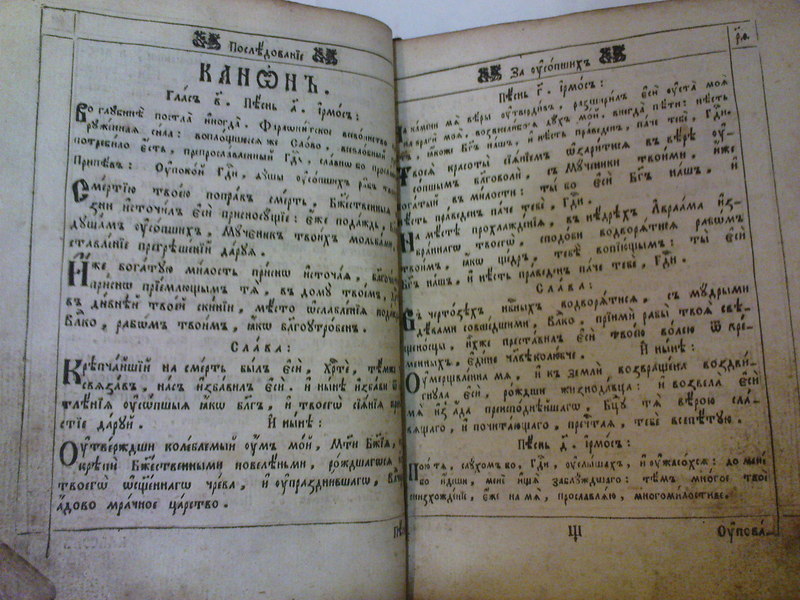 Послѣдованіе
КАНѠНЪ.
Гласъ в҃. Пѣснь а҃. і҆рмосъ:
Во глубинѣ постла и҆ногда, Фараѡнитское всево́инство
рꙋженная сила: воплощшееся же Слово, всеѕлобный
потребило є҆сть, препрославленный Гдⷭ҇ь, славнѡ бо просла
Припѣвъ: Оу҆покой Гдⷭ҇и, дꙋшы оу҆сопшихъ рабъ твоихъ
Смертїю твоею поправъ смерть, Бжⷭ҇твеннымъ
зни и҆сточилъ є҆сѝ присносꙋщїе: є҆же подаждь,
дꙋшамъ оу҆сопшихъ, Мꙋченикъ твоихъ мольбами,
ставленїе прегрѣшенїй дарꙋѧ.
И҆же богатꙋю милость приснѡ и҆сточаѧ,
дариснѡ прїемлющымъ тѧ, въ домꙋ твоемъ,
въ дивнѣй твоей скинїи, мѣсто ѡ҆славленїѧ подаждь
Влⷣко, рабѡмъ твоимъ, ꙗ҆кѡ блгоꙋтробенъ.
Слава:
Крѣпчайшїй на смерть былъ є҆сѝ, Хрⷭ҇тѐ, тѣмже
свѧзавъ, насъ и҆збавилъ є҆сѝ. и҆ нынѣ и҆збави ѿ
тлѣнїѧ оу҆сѡпшыѧ ꙗ҆кѡ блгъ, и҆ твоегѡ сїѧнїѧ
стїе дарꙋй. И҆ нынѣ:
Оу҆твержⷣши колебаемый оу҆мъ мой, Мт҃и Бж҃їѧ,
крѣпи Бжⷭ҇твенными повелѣньми, рождшагосѧ
твоегѡ ѡ҆сщⷺннагѡ чрева, и҆ оу҆празднившагѡ,
а҆дово мрачное царство.
За оу҆сопшихъ
Пѣснь г҃. і҆рмосъ:
На камени мѧ вѣры оу҆твердивъ, разширилъ є҆сѝ оу҆ста моѧ
на враги моѧ, возвеселибосѧ дꙋхъ мой, внегда пѣти: нѣсть
свѧтъ, ꙗ҆коже Бг҃ъ нашъ, и҆ нѣсть праведенъ, паче тебе, Гдⷭ҇и.
Твоеѧ красоты сїѧнїемъ ѡ҆заритисѧ въ вѣрѣ оу҆
сопшымъ благоволи, съ Мꙋченики твоими, ꙗ҆же
богатый въ милости: ты бо є҆сѝ Бг҃ъ нашъ, и҆
нѣсть праведенъ паче тебе, Гдⷭ҇и.
На мѣстѣ прохлажденїѧ, въ нѣдрѣхъ А҆враама и҆з
браннагѡ твоегѡ, сподоби водворѧтисѧ рабѡмъ
твоимъ, ꙗ҆кѡ щедръ, тебѣ вопїющымъ: ты є҆сѝ
Бг҃ъ нашъ, и҆ нѣсть праведенъ паче тебе, Гдⷭ҇и.
Слава:
Въ чертозѣхъ нбⷭ҇ныхъ водворѧтисѧ, съ мꙋдрыми
дѣвами совшедшими, Влⷣко, прїими рабы твоѧ свѣ
щеносцы, и҆хже преставилъ є҆сѝ твоею волею ѿ вре
менныхъ, є҆дине члвѣколюбче. И҆ нынѣ:
Оу҆мерщвленна мѧ, и҆ къ земли возвращена воздви
гнꙋла є҆сѝ, рождши жизнодавца: и҆ возвела є҆сѝ
мѧ и҆з̾ а҆да преисподнѣйшагѡ, Бцⷣꙋ тѧ вѣрою сла
вѧщаго, и҆ почитающаго, преⷱ҇таѧ, тебе всепѣтꙋю.
Пѣснь д҃. і҆рмосъ:
Пою тѧ, слꙋхомъ бо, Гдⷭ҇и, оу҆слышахъ, и҆ оу҆жасохсѧ: до мене
бо и҆деши, мене и҆щѧ заблꙋждшаго: тѣмъ многое твое
низхожденїе, є҆же на мѧ, прославлѧю, многомилостиве.
Щ
Оу҆пова